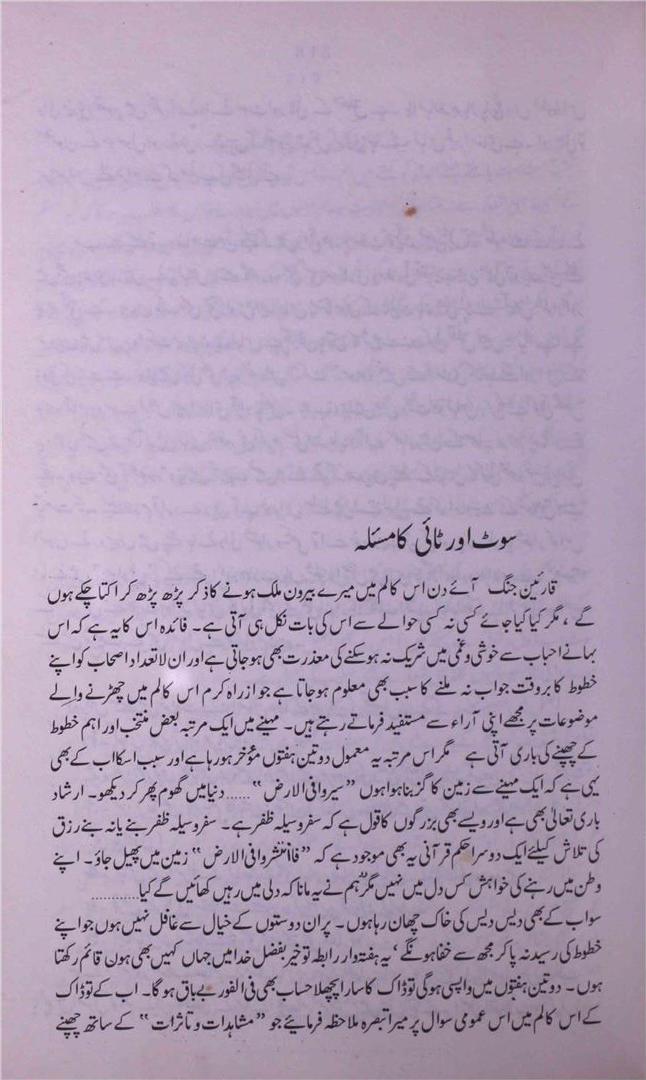 سوٹ اور ٹائی کا مسئلہ
قارئین جنگ آئے دن اس کالم میں میرے بیرون ملک ہونے کا ذکر پڑھ پڑھ کر اکتا چکے ہوں
گے، مگر کیا کیا جائے کسی نہ کسی حوالے سے اس کی بات نکل ہی آتی ہے۔ فائدہ اس کا یہ ہے کہ اس
بہانے احباب سے خوشی و غمی میں شریک نہ ہو سکنے کی معذرت بھی ہو جاتی ہے اور ان لاتعداد اصحاب کو اپنے
خطوط کا بروقت جواب نہ ملنے کا سبب بھی معلوم ہو جاتا ہے جو ازراہ کرم اس کالم میں چھڑنے والے
موضوعات پر مجھے اپنی آراء سے مستفید فرماتے رہتے ہیں۔ مہینے میں ایک مرتبہ بعض منتخب اور اہم خطوط
کے چھپنے کی باری آتی ہے مگر اس مرتبہ یہ معمول دو تین ہفتوں مؤخر ہو رہا ہے اور سبب اسکا اب کے بھی
یہی ہے کہ ایک مہینے سے زمین کا گز بنا ہوا ہوں ”سیروا فی الارض“ ...... دنیا میں گھوم پھر کر دیکھو۔ ارشاد
باری تعالیٰ بھی ہے اور ویسے بھی بزرگوں کا قول ہے کہ سفر وسیلہ ظفر ہے۔ سفر وسیلہ ظفر بنے یا نہ بنے رزق
کی تلاش کیلئے ایک دوسرا حکم قرآنی یہ بھی موجود ہے کہ ”فانتشروا فی الارض“ زمین میں پھیل جاؤ۔ اپنے
وطن میں رہنے کی خواہش کس دل میں نہیں مگر ہم نے یہ مانا کہ دلی میں رہیں کھائیں گے کیا............
سو اب کے بھی دیس دیس کی خاک چھان رہا ہوں۔ پر ان دوستوں کے خیال سے غافل نہیں ہوں جو اپنے
خطوط کی رسید نہ پا کر مجھ سے خفا ہونگے‘ یہ ہفتہ وار رابطہ تو خیر بفضل خدا میں جہاں کہیں بھی ہوں قائم رکھتا
ہوں۔ دو تین ہفتوں میں واپسی ہوگی تو ڈاک کا سارا پچھلا حساب بھی فی الفور بے باق ہو گا۔ اب کے تو ڈاک
کے اس کالم میں اس عمومی سوال پر میرا تبصرہ ملاحظہ فرمایئے جو ”مشاہدات و تاثرات“ کے ساتھ چھپنے